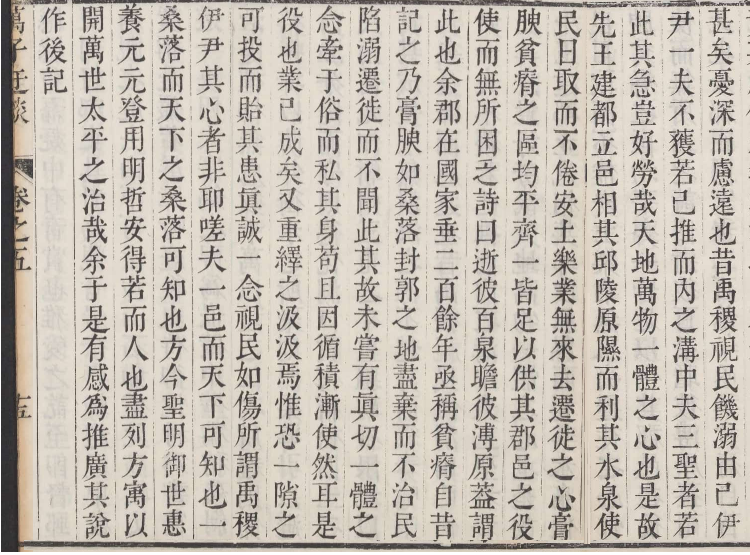 甚矣憂深而慮遠也昔禹稷視民饑溺由己伊
尹一夫不獲若己推而內之溝中夫三聖者若
此其急豈好勞哉天地萬物一體之心也是故
先王建都立邑相其邱陵原隰而利其水泉使
民日取而不倦安土樂業無來去遷徙之心膏
腴貧瘠之區均平齊一皆足以供其郡邑之役
使而無所困之詩曰逝彼百泉瞻彼溥原葢謂
此也余郡在國家垂二百餘年亟稱貧瘠自昔
記之乃膏腴如桑落封郭之地盡棄而不治民
陷溺遷徙而不聞此其故未嘗有眞切一體之
念牽于俗而私其身苟且因循積漸使然耳是
役也業已成矣又重繹之汲汲焉惟恐一隙之
可投而貽其患眞誠一念視民如傷所謂禹稷
伊尹其心者非耶嗟夫一邑而天下可知也一
桑落而天下之桑落可知也方今聖明御世惠
養元元登用明哲安得若而人也盡列方寓以
開萬世太平之治哉余于是有感爲推廣其說
作後記
萬子迂談
卷之五
十五